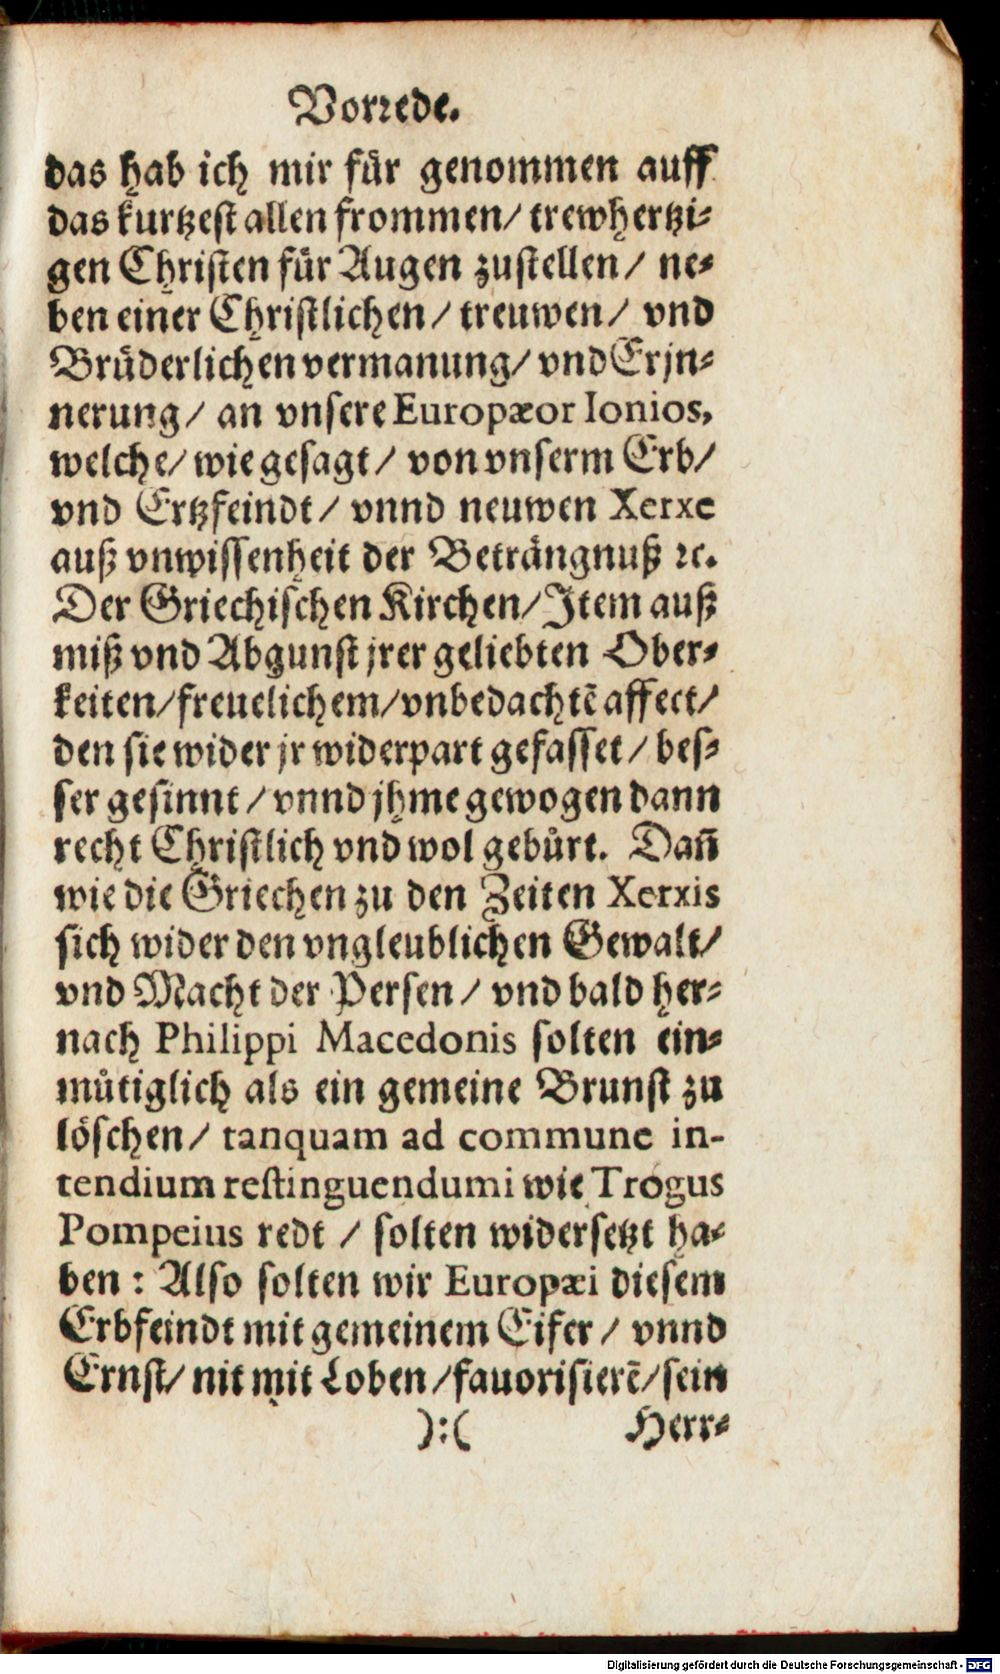 Vorrede.
das hab ich mir für genommen auff
das kurtzest allen frommen/ trewhertzi⸗
gen Christen für Augen zustellen/ ne⸗
ben einer Christlichen/ treuwen/ vnd
Brüderlichen vermanung/ vnd Erjn⸗
nerung/ an vnsere Europæor Ionios,
welche/ wie gesagt/ von vnserm Erb/
vnd Ertzfeindt/ vnnd neuwen Xerxe
auß vnwissenheit der Beträngnuß ꝛc.
Der Griechischen Kirchen/ Item auß
miß vnd Abgunst jrer geliebten Ober⸗
keiten/ freuelichem/ vnbedachtẽ affect/
den sie wider jr widerpart gefasset/ bes⸗
ser gesinnt/ vnnd jhme gewogen dann
recht Christlich vnd wol gebürt. Dañ
wie die Griechen zu den Zeiten Xerxis
sich wider den vngleublichen Gewalt/
vnd Macht der Persen/ vnd bald her⸗
nach Philippi Macedonis solten ein⸗
mütiglich als ein gemeine Brunst zu
löschen/ tanquam ad commune in-
tendium restinguendumi wie Trogus
Pompeius redt / solten widersetzt ha⸗
ben : Also solten wir Europæi diesem
Erbfeindt mit gemeinem Eifer/ vnnd
Ernst/ nit mit Loben/ fauorisierẽ/ sein
):( Herr⸗
Digitalisierung gefördert durch die Deutsche Forschungsgemeinschaft - DFG